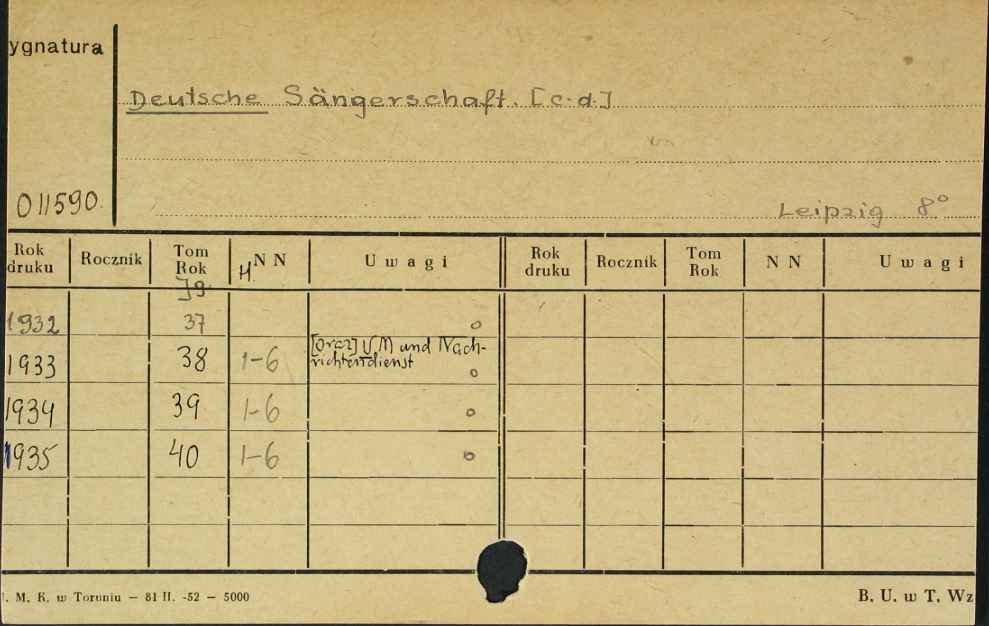 ygnatura
Deutsche Sängerschaft. [c.d.]
011590.
Leipzig 8°
Rok druku Rocznik Tom Rok Jg. H. N N U w a g i Rok druku Rocznik Tom Rok N N U w a g i
1932 37 o
1933 38 1-6 [oraz] und Nach-
richtendienst o
1934 39 1-6 o
1935 40 1-6 o
. M. K. w Toruniu — 81 II. -52 — 5000
B. U. w T. Wz